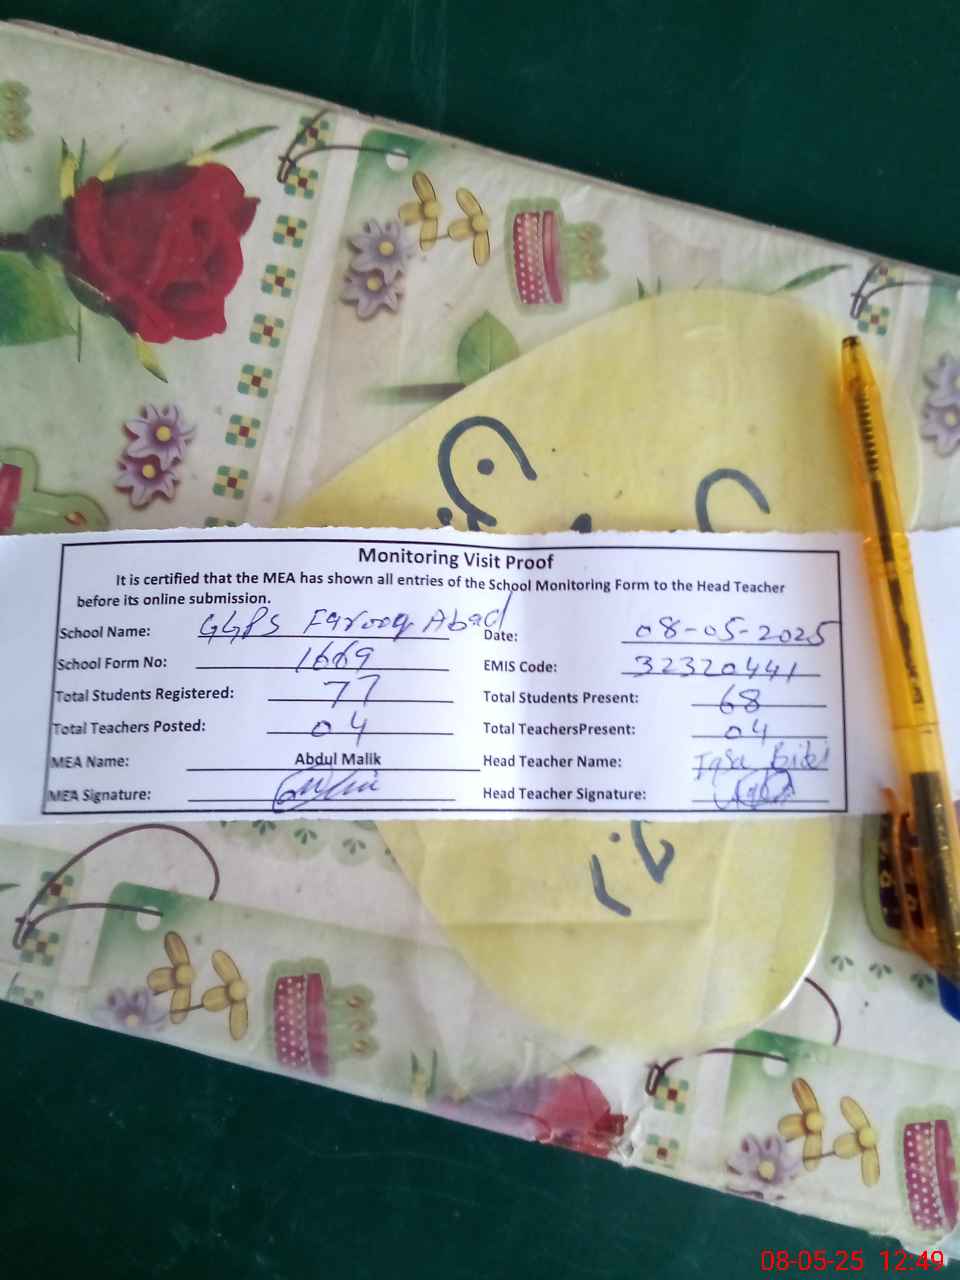 Monitoring Visit Proof
It is certified that the MEA has shown all entries of the School Monitoring Form to the Head Teacher
before its online submission.
School Name: GGPS Farooq Abad Date: 08-05-2025
School Form No: 1669 EMIS Code: 32320441
Total Students Registered: 77 Total Students Present: 68
Total Teachers Posted: 04 Total TeachersPresent: 04
MEA Name: Abdul Malik Head Teacher Name: Iqsa Bibi
MEA Signature: Head Teacher Signature:
08-05-25 12:49